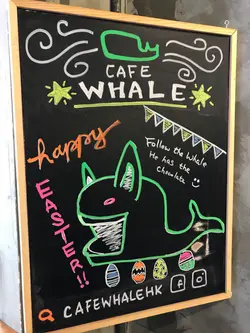 CAFE
WHALE
happy
Follow the Whale
He has the
Chocolate
EASTER!!
CAFEWHALEHK